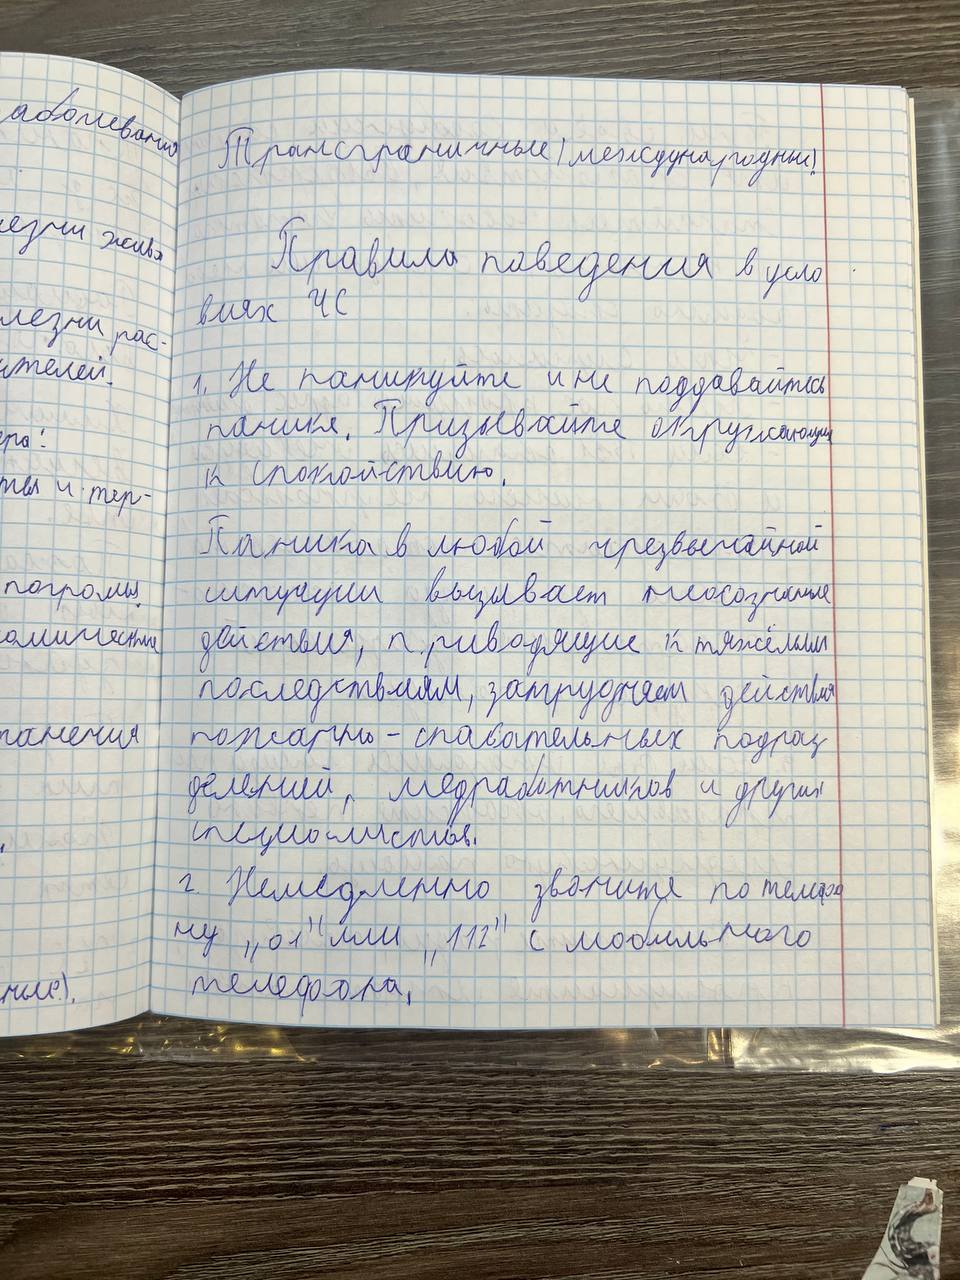 аболевания
езни живо
лезни рас-
ителей.
ера!
ты и тер-
погромы.
омические
танения
ные).
Трансграничные (международные)
Правила поведения в усло
виях ЧС
1. Не паникуйте и не поддавайтесь
панике. Призывайте окружающих
к спокойствию.
Паника в любой чрезвычайной
ситуации вызывает неосознанные
действия, приводящие к тяжёлым
последствиям, затрудняет действия
пожарно-спасательных подраз
делений, медработников и других
специалистов.
2. Немедленно звоните по телефо
ну „01" или „112" с мобильного
телефона.